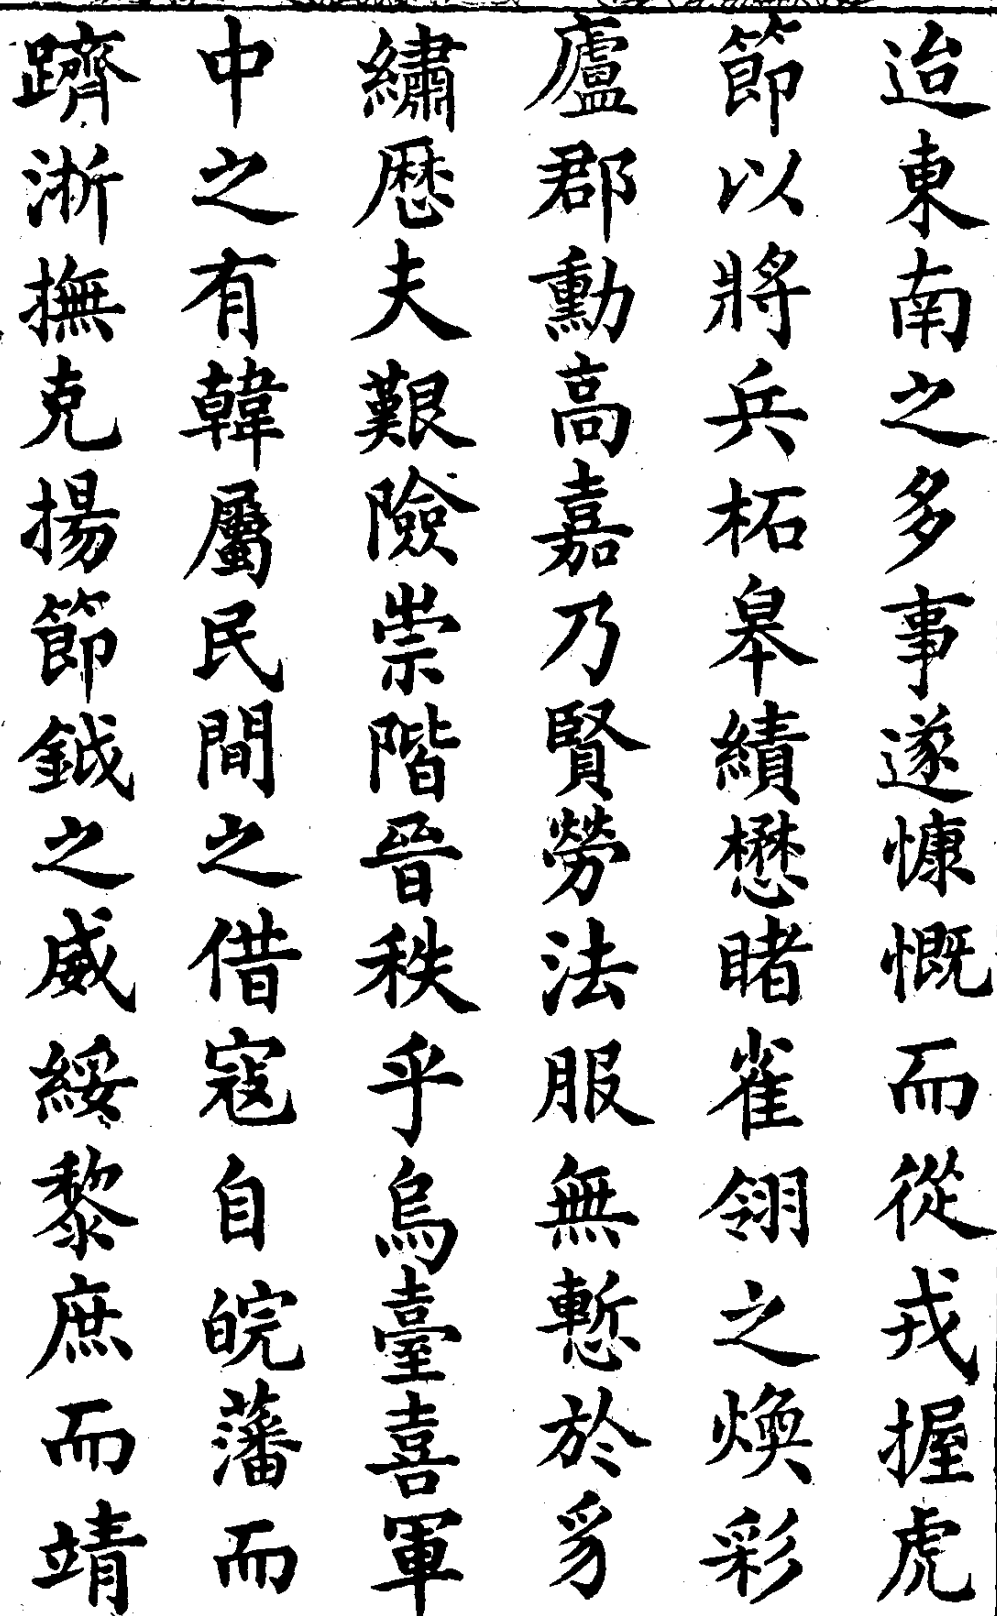 迨東南之多事遂慷慨而從戎握虎
節以將兵柘皋績懋睹雀翎之煥彩
廬郡勳高嘉乃賢勞法服無慙於豸
繡厯夫艱險崇階晉秩乎烏臺喜軍
中之有韓屬民間之借寇自皖藩而
躋淅撫克揚節鉞之威綏黎庶而靖